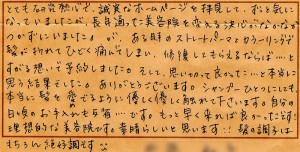 とても研究熱心で、誠実なホームページを拝見して、ずっと気に
なっていましたが、長年通った美容院を変える決心がなかなか
つかずにいました。が、ある時のストレートパーマとカラーリングで
髪が折れてひどく痛んでしまい、修復してもらえるならば…と
すがる想いで予約しました。そして、思いきって良かった…と本当に
思う結果でした。ありがとうございます。シャンプーひとつにも
本当に髪を愛でるように優しく優しく触れて下さいます。自分の
日頃のお手入れも反省…です。もっと早く来れば良かったです!
理想的な美容院です。素晴らしいと思います!!髪の調子は
もちろん絶好調です